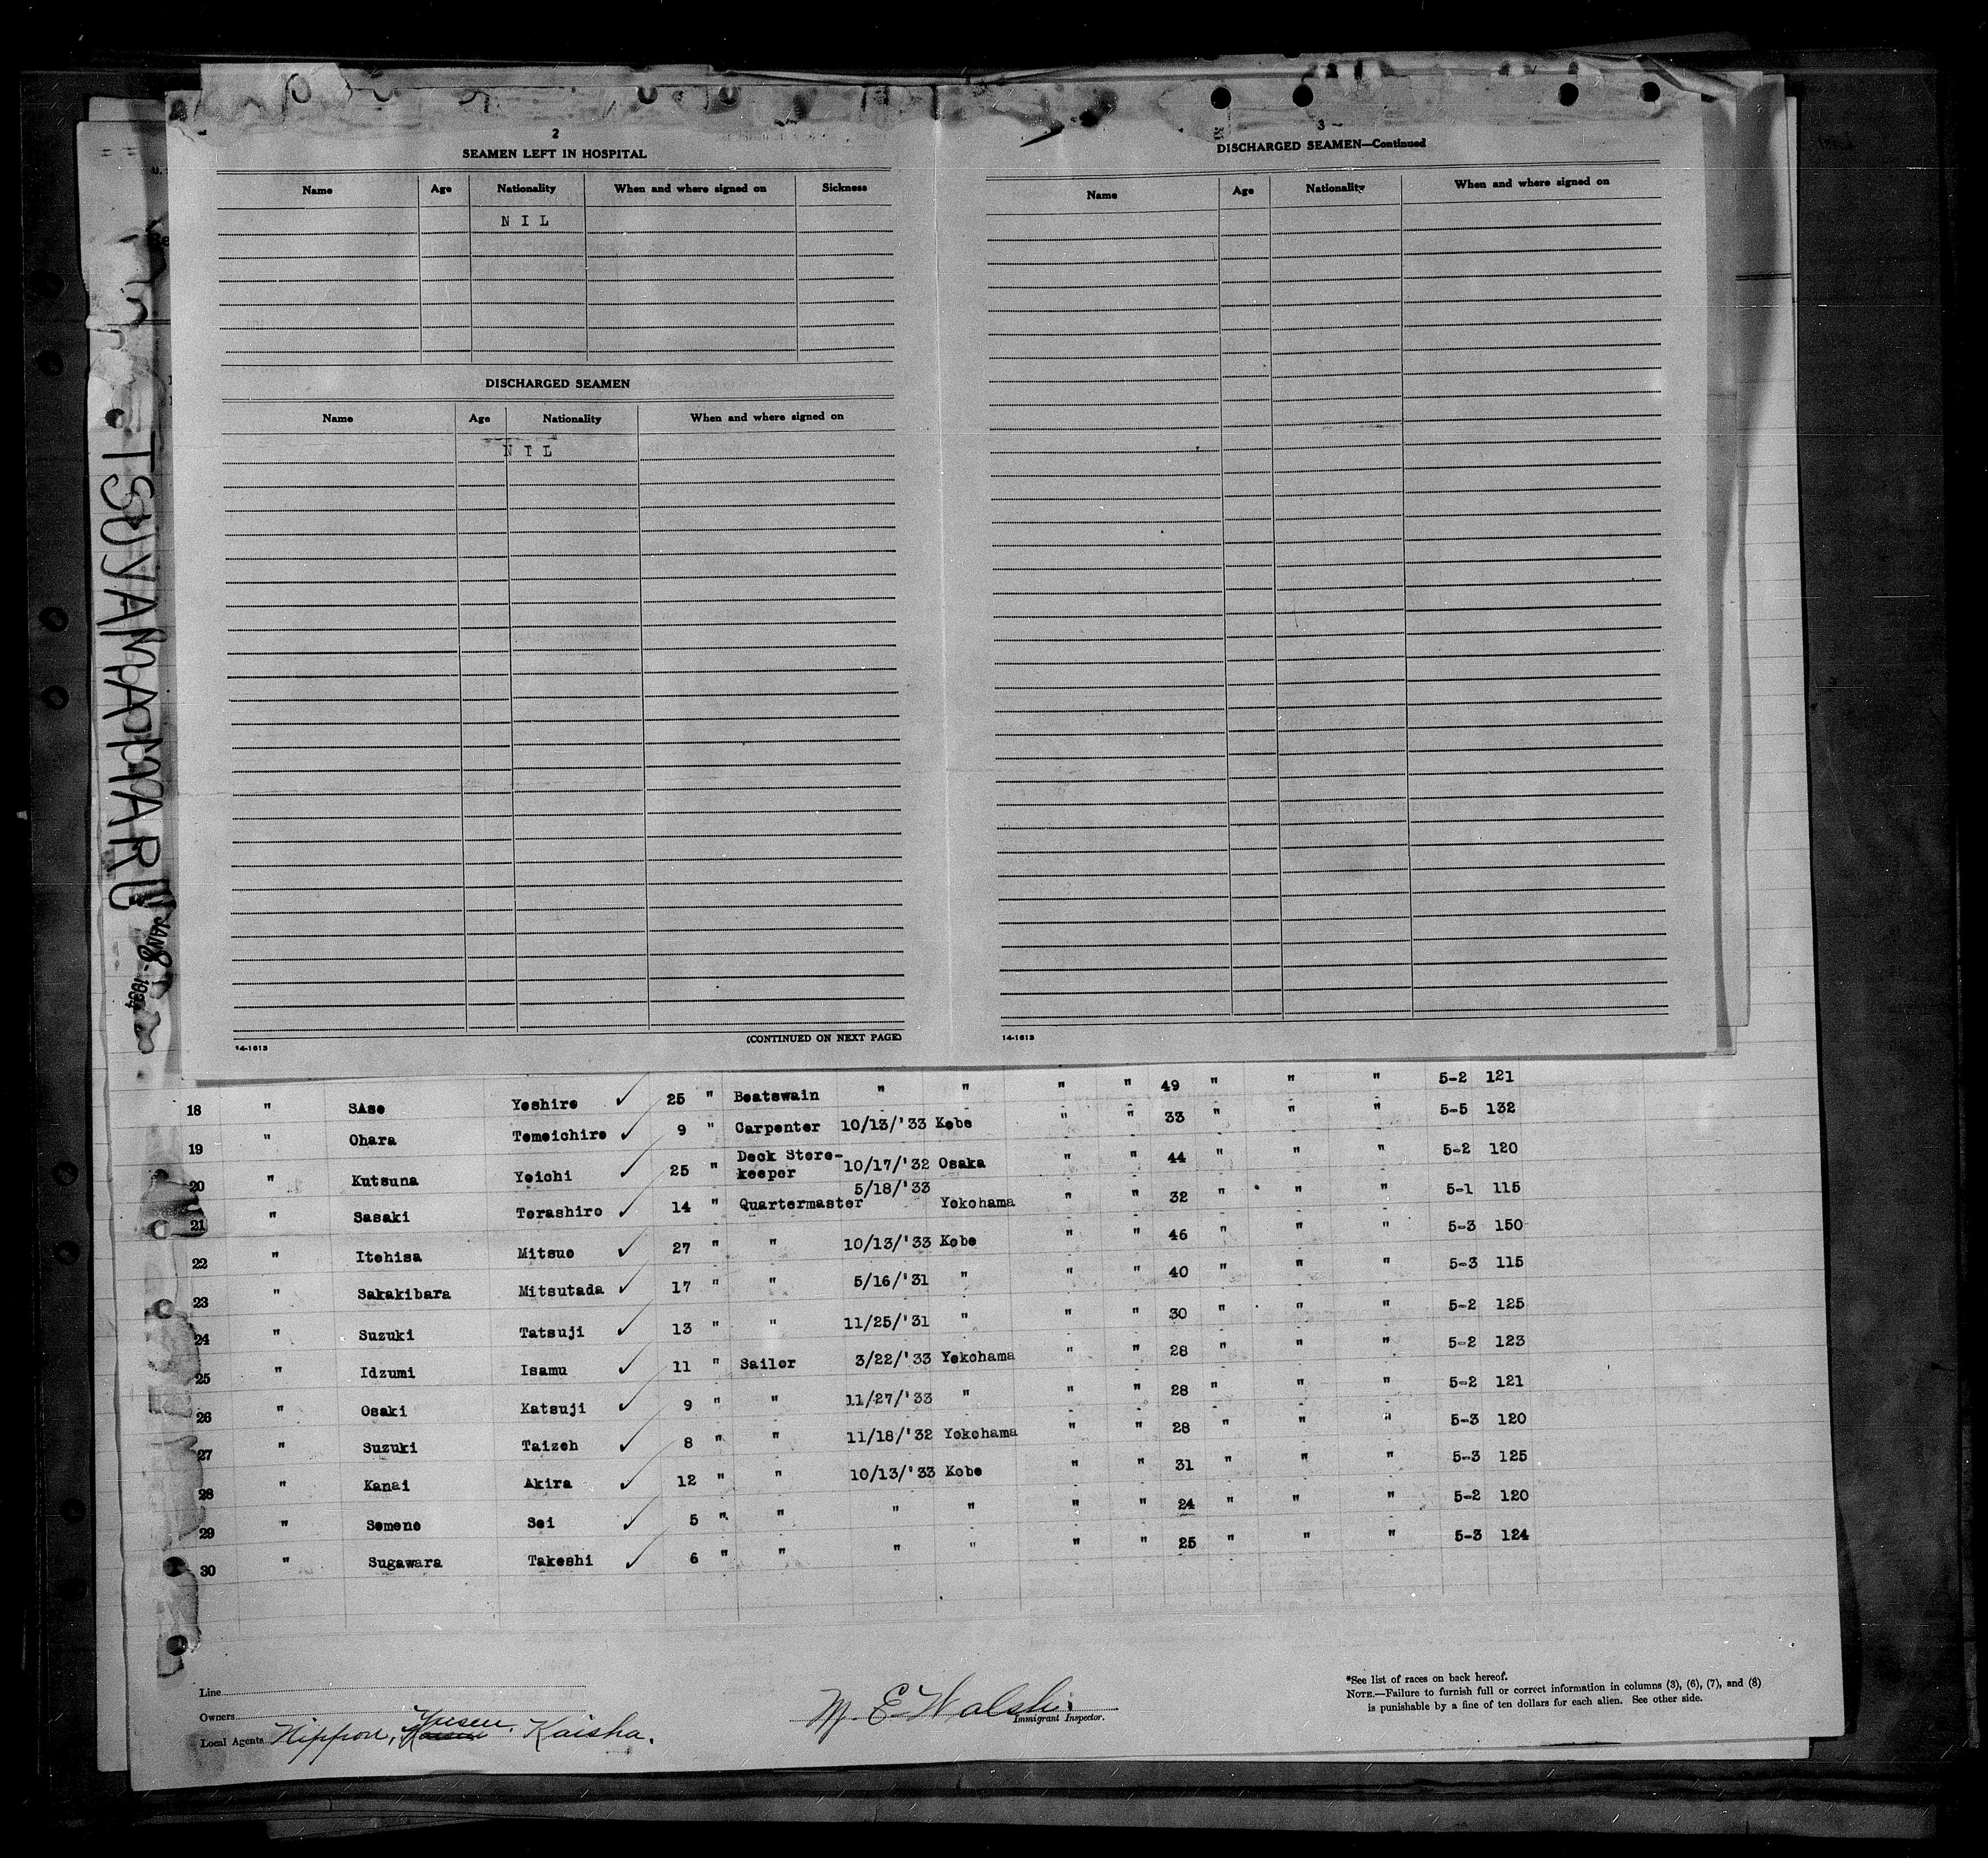 2
SEAMEN LEFT IN HOSPITAL
Name Age Nationality When and where signed on Sickness
NIL
DISCHARGED SEAMEN
Name Age Nationality When and where signed on
NIL
(CONTINUED ON NEXT PAGE)
14-1613
3
DISCHARGED SEAMEN—Continued
Name Age Nationality When and where signed on
14-1613
TSUYAMA MARU
JAN 8 - 1934
18 " SAse Yoshire ✓ 25 " Boatswain " " " " 49 " " " 5-2 121
19 " Ohara Tomeichire ✓ 9 " Carpenter 10/13/'33 Kobe " " 33 " " " 5-5 132
20 " Kutsuna Yoichi ✓ 25 " Deck Store-keeper 10/17/'32 Osaka " " 44 " " " 5-2 120
21 " Sasaki Torashiro ✓ 14 " Quartermaster 5/18/'33 Yokohama " " 32 " " " 5-1 115
22 " Itohisa Mitsuo ✓ 27 " " 10/13/'33 Kobe " " 46 " " " 5-3 150
23 " Sakakibara Mitsutada ✓ 17 " " 5/16/'31 " " " 40 " " " 5-3 115
24 " Suzuki Tatsuji ✓ 13 " " 11/25/'31 " " " 30 " " " 5-2 125
25 " Idzumi Isamu ✓ 11 " Sailor 3/22/'33 Yokohama " " 28 " " " 5-2 123
26 " Osaki Katsuji ✓ 9 " " 11/27/'33 " " " 28 " " " 5-2 121
27 " Suzuki Taizoh ✓ 8 " " 11/18/'32 Yokohama " " 28 " " " 5-3 120
28 " Kanai Akira ✓ 12 " " 10/13/'33 Kobe " " 31 " " " 5-3 125
29 " Someno Sei ✓ 5 " " " " " " 24 " " " 5-2 120
30 " Sugawara Takeshi ✓ 6 " " " " " " 25 " " " 5-3 124
Line
Owners
Local Agents Nippon, Yusen Kaisha.
M. E. Walsh.
Immigrant Inspector.
*See list of races on back hereof.
NOTE.—Failure to furnish full or correct information in columns (3), (6), (7), and (8)
is punishable by a fine of ten dollars for each alien. See other side.